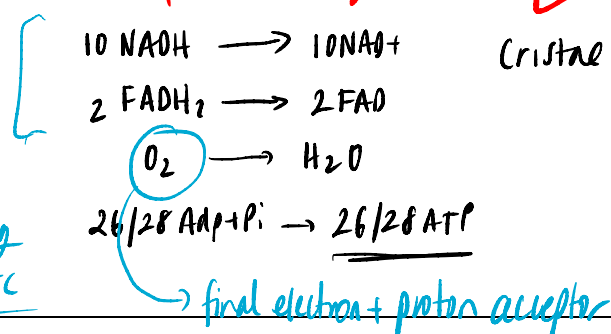 10 NADH → 10NAD+ Cristae
2 FADH₂ → 2 FAD
O₂ → H₂O
26/28 Adp+Pi → 26/28 ATP
→ final electron + proton acceptor